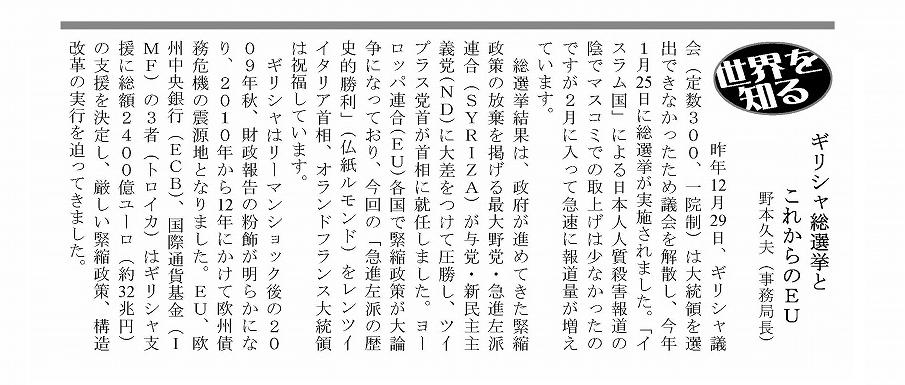 世界を
知る
ギリシャ総選挙と
これからのEU
野本久夫（事務局長）
昨年12月29日、ギリシャ議
会（定数300、一院制）は大統領を選
出できなかったため議会を解散し、今年
1月25日に総選挙が実施されました。「イ
スラム国」による日本人人質殺害報道の
陰でマスコミでの取上げは少なかったの
ですが2月に入って急速に報道量が増え
ています。
総選挙結果は、政府が進めてきた緊縮
政策の放棄を掲げる最大野党・急進左派
連合（SYRIZA）が与党・新民主主
義党（ND）に大差をつけて圧勝し、ツイ
プラス党首が首相に就任しました。ヨー
ロッパ連合（EU）各国で緊縮政策が大論
争になっており、今回の「急進左派の歴
史的勝利」（仏紙ルモンド）をレンツィ
イタリア首相、オランドフランス大統領
は祝福しています。
ギリシャはリーマンショック後の20
09年秋、財政報告の粉飾が明らかにな
り、2010年から12年にかけて欧州債
務危機の震源地となりました。EU、欧
州中央銀行（ECB）、国際通貨基金（I
MF）の3者（トロイカ）はギリシャ支
援に総額2400億ユーロ（約32兆円）
の支援を決定し、厳しい緊縮政策、構造
改革の実行を迫ってきました。